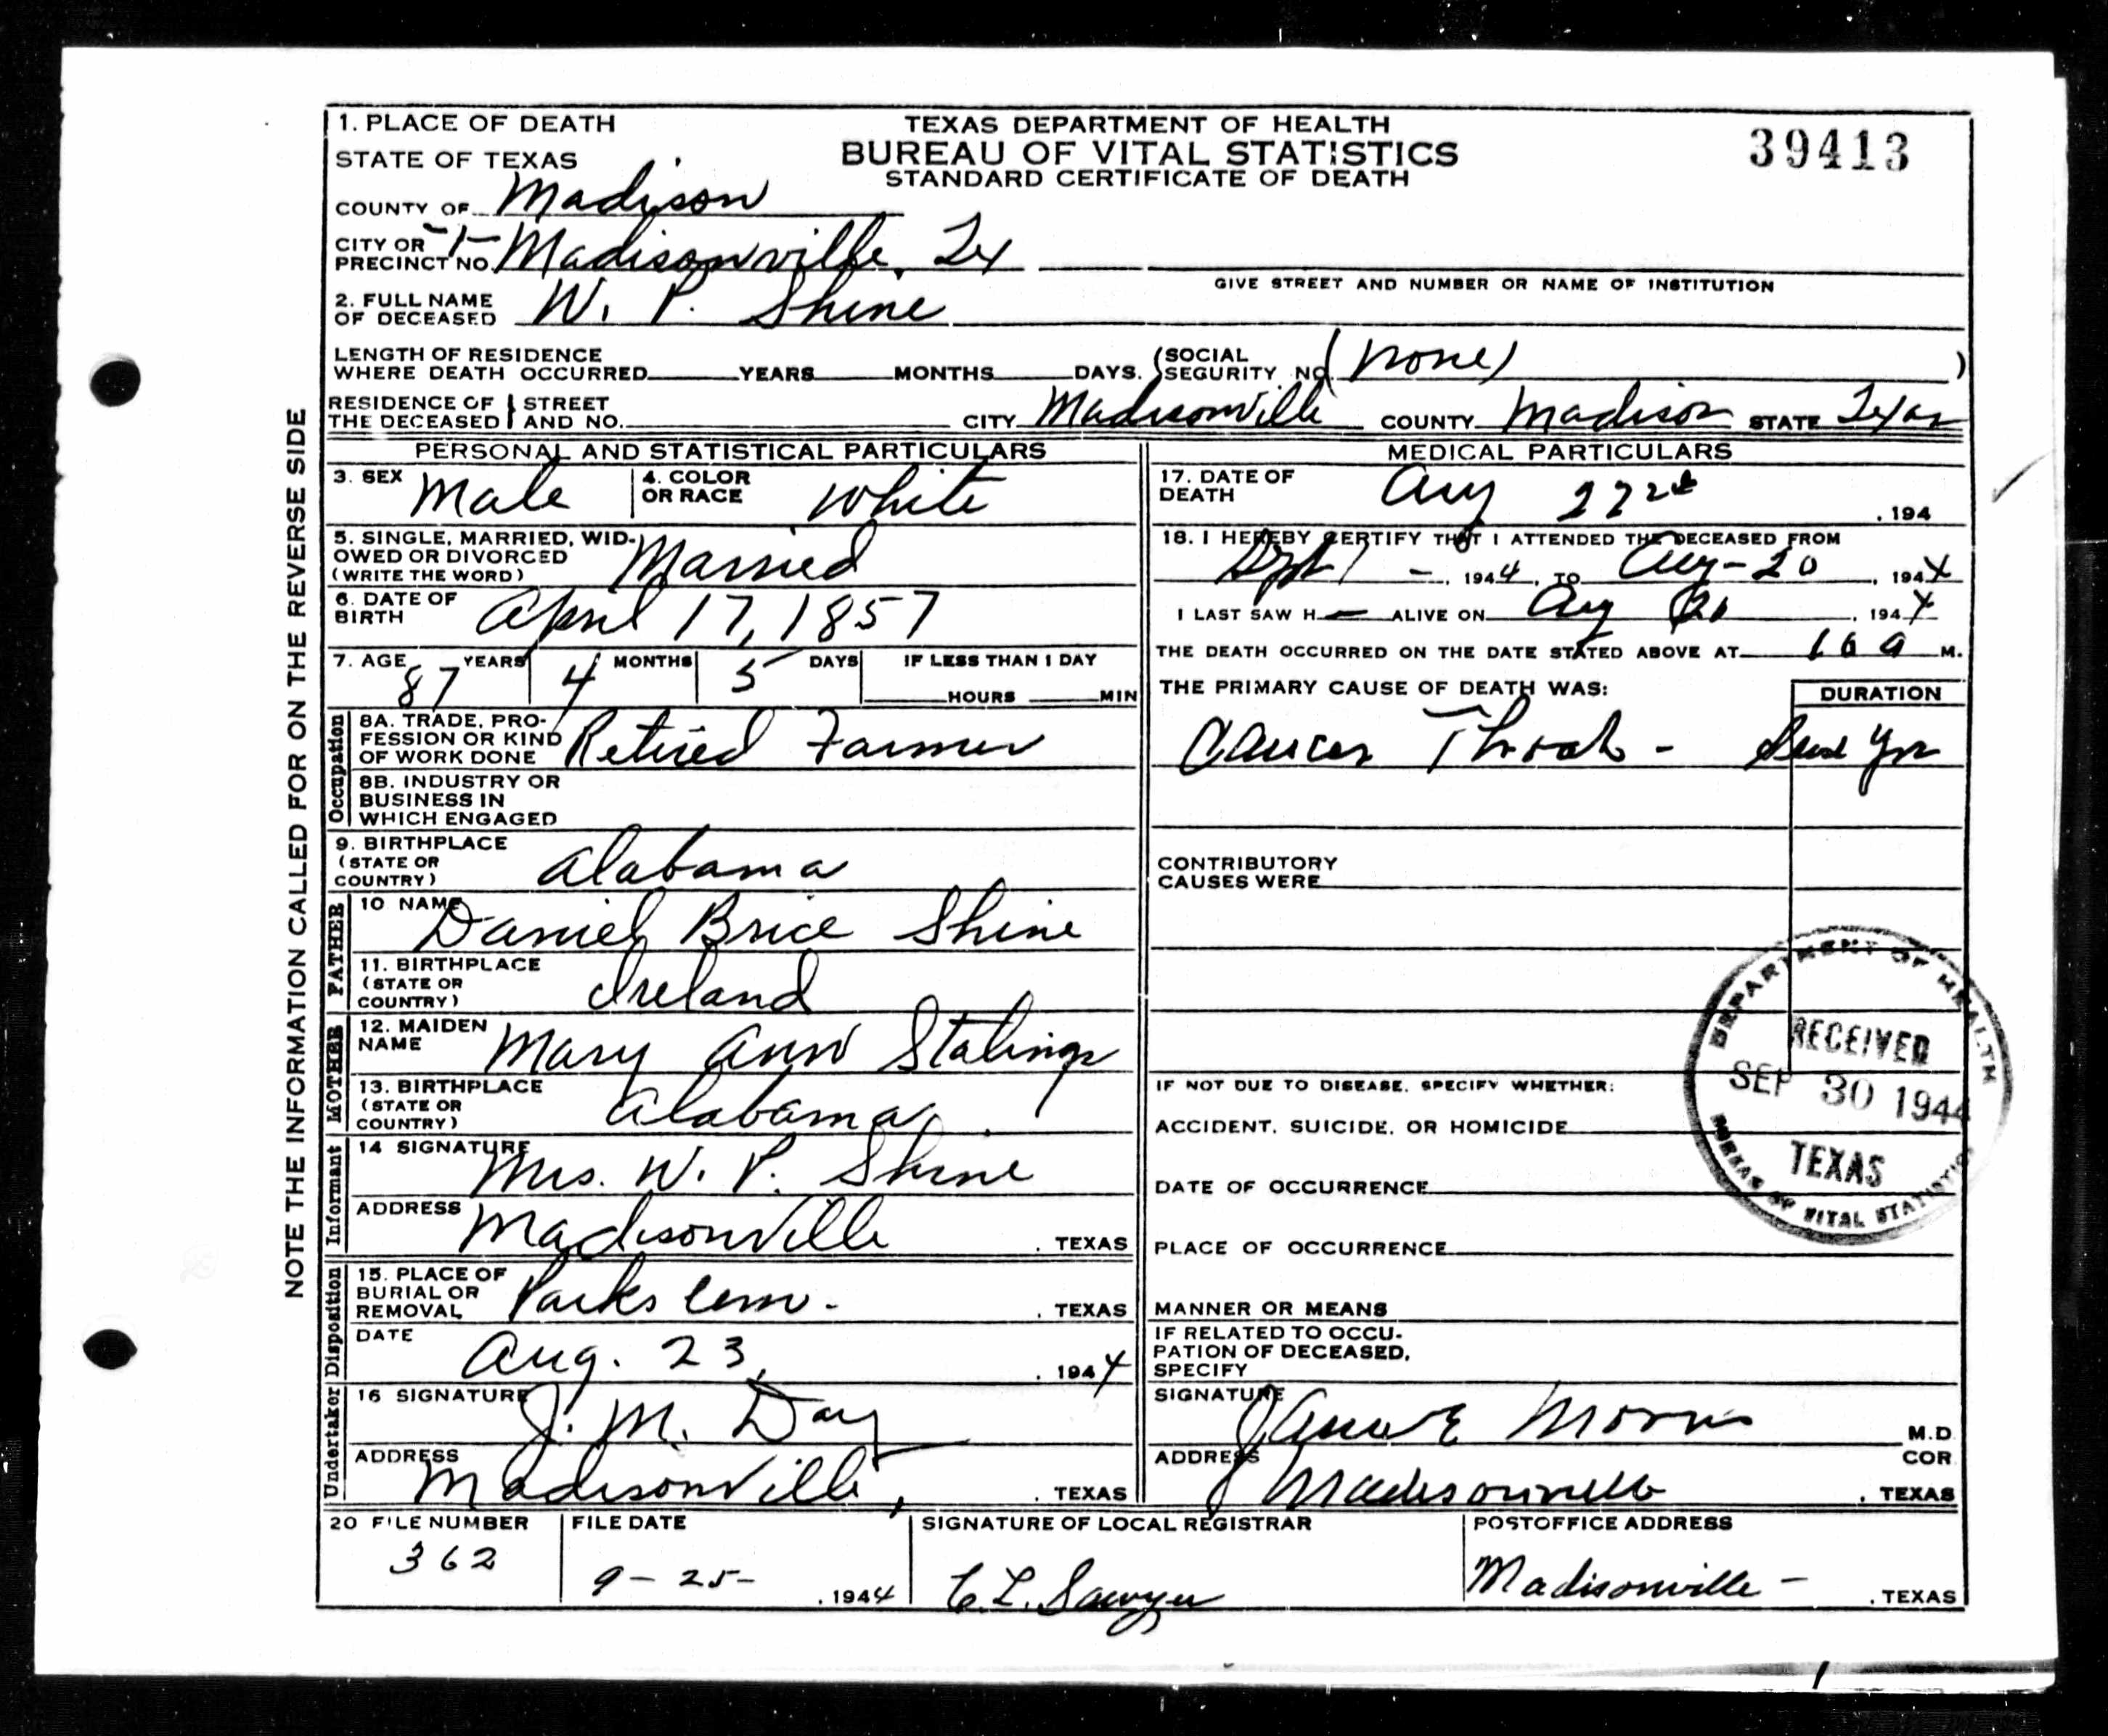 1. PLACE OF DEATH
STATE OF TEXAS
TEXAS DEPARTMENT OF HEALTH
BUREAU OF VITAL STATISTICS
STANDARD CERTIFICATE OF DEATH
39413
COUNTY OF Madison
CITY OR PRECINCT NO. 1- Madisonville, Tex
GIVE STREET AND NUMBER OR NAME OF INSTITUTION
2. FULL NAME OF DECEASED W. P. Shine
LENGTH OF RESIDENCE WHERE DEATH OCCURRED YEARS MONTHS DAYS. (SOCIAL SECURITY NO. (none) )
RESIDENCE OF THE DECEASED STREET AND NO. CITY Madisonville COUNTY Madison STATE Texas
NOTE THE INFORMATION CALLED FOR ON THE REVERSE SIDE
PERSONAL AND STATISTICAL PARTICULARS
3. SEX Male 4. COLOR OR RACE White
5. SINGLE, MARRIED, WIDOWED OR DIVORCED (WRITE THE WORD) Married
6. DATE OF BIRTH April 17, 1857
7. AGE 87 YEARS 4 MONTHS 5 DAYS IF LESS THAN 1 DAY HOURS MIN
Occupation
8A. TRADE, PROFESSION OR KIND OF WORK DONE Retired Farmer
8B. INDUSTRY OR BUSINESS IN WHICH ENGAGED
9. BIRTHPLACE (STATE OR COUNTRY) Alabama
FATHER
10 NAME Daniel Brice Shine
11. BIRTHPLACE (STATE OR COUNTRY) Ireland
MOTHER
12. MAIDEN NAME Mary Ann Stalings
13. BIRTHPLACE (STATE OR COUNTRY) Alabama
Informant
14 SIGNATURE Mrs. W. P. Shine
ADDRESS Madisonville, TEXAS
Disposition
15. PLACE OF BURIAL OR REMOVAL Parks Cem. , TEXAS
DATE Aug. 23, 1944
Undertaker
16 SIGNATURE J. M. Day
ADDRESS Madisonville, TEXAS
MEDICAL PARTICULARS
17. DATE OF DEATH Aug , 194
18. I HEREBY CERTIFY THAT I ATTENDED THE DECEASED FROM
Sept 1 - , 1944, TO Aug - 20 , 1944
I LAST SAW H ALIVE ON Aug , 1944
THE DEATH OCCURRED ON THE DATE STATED ABOVE AT M.
THE PRIMARY CAUSE OF DEATH WAS: DURATION
Cancer Throat - Yrs
CONTRIBUTORY CAUSES WERE
IF NOT DUE TO DISEASE, SPECIFY WHETHER:
ACCIDENT, SUICIDE, OR HOMICIDE
DATE OF OCCURRENCE
PLACE OF OCCURRENCE
MANNER OR MEANS
IF RELATED TO OCCUPATION OF DECEASED, SPECIFY
SIGNATURE James E Morris M.D. COR
ADDRESS Madisonville, TEXAS
DEPARTMENT OF HEALTH
RECEIVED
SEP 30 1944
TEXAS
BUREAU OF VITAL STATISTICS
20 FILE NUMBER 362
FILE DATE 9-25- , 1944
SIGNATURE OF LOCAL REGISTRAR C. L. Sawyer
POSTOFFICE ADDRESS Madisonville - , TEXAS